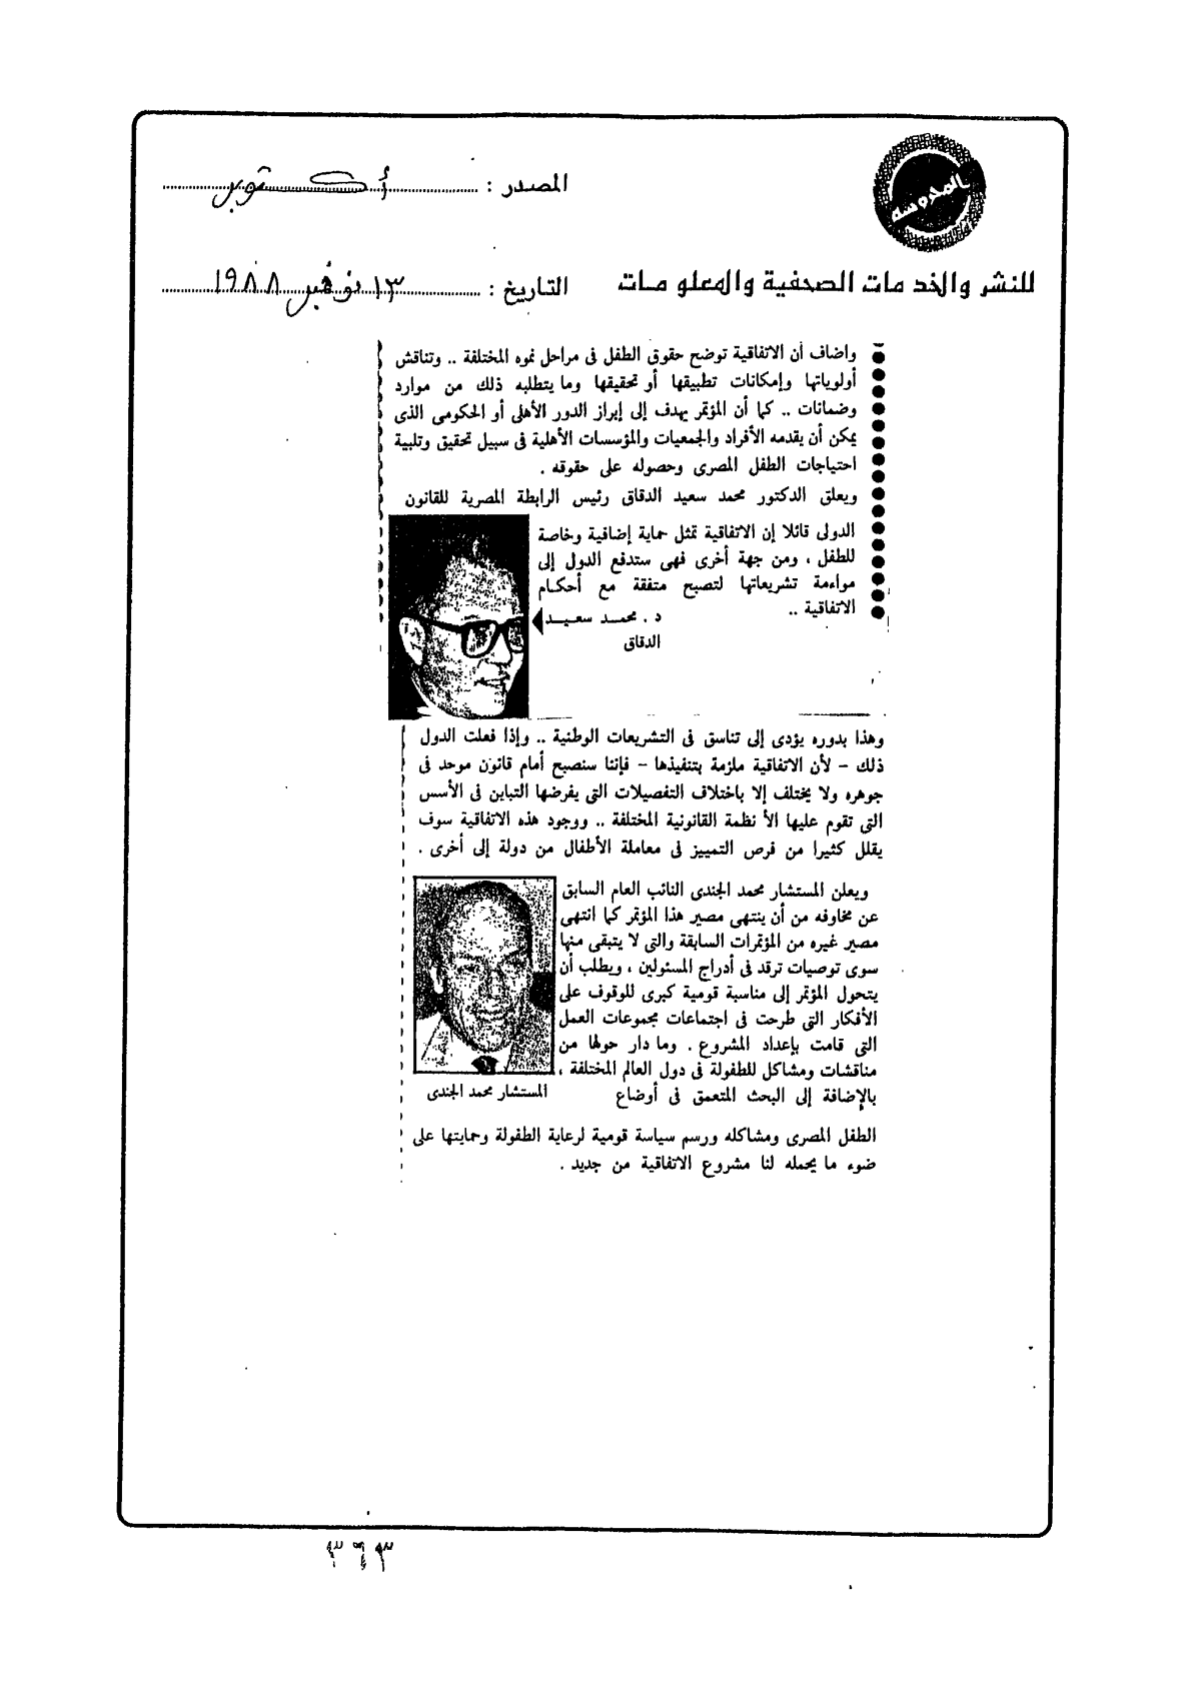 المحروسة
المصدر : أكتوبر
للنشر والخدمات الصحفية والمعلومات
التاريخ : ١٣ نوفمبر ١٩٨٨
واضاف أن الاتفاقية توضح حقوق الطفل فى مراحل نموه المختلفة .. وتناقش
أولوياتها وإمكانات تطبيقها أو تحقيقها وما يتطلبه ذلك من موارد
وضمانات .. كما أن المؤتمر يهدف إلى إبراز الدور الأهلى أو الحكومى الذى
يمكن أن يقدمه الأفراد والجمعيات والمؤسسات الأهلية فى سبيل تحقيق وتلبية
احتياجات الطفل المصرى وحصوله على حقوقه .
ويعلق الدكتور محمد سعيد الدقاق رئيس الرابطة المصرية للقانون
الدولى قائلا إن الاتفاقية تمثل حماية إضافية وخاصة
للطفل ، ومن جهة أخرى فهى ستدفع الدول إلى
مواءمة تشريعاتها لتصبح متفقة مع أحكام
الاتفاقية ..
د . محمد سعيد
الدقاق
وهذا بدوره يؤدى إلى تناسق فى التشريعات الوطنية .. وإذا فعلت الدول
ذلك - لأن الاتفاقية ملزمة بتنفيذها - فإننا سنصبح أمام قانون موحد فى
جوهره ولا يختلف إلا باختلاف التفصيلات التى يفرضها التباين فى الأسس
التى تقوم عليها الأ نظمة القانونية المختلفة .. ووجود هذه الاتفاقية سوف
يقلل كثيرا من فرص التمييز فى معاملة الأطفال من دولة إلى أخرى .
ويعلن المستشار محمد الجندى النائب العام السابق
عن مخاوفه من أن ينتهى مصير هذا المؤتمر كما انتهى
مصير غيره من المؤتمرات السابقة والتى لا يتبقى منها
سوى توصيات ترقد فى أدراج المسئولين ، ويطلب أن
يتحول المؤتمر إلى مناسبة قومية كبرى للوقوف على
الأفكار التى طرحت فى اجتماعات مجموعات العمل
التى قامت بإعداد المشروع . وما دار حولها من
مناقشات ومشاكل للطفولة فى دول العالم المختلفة ،
بالإضافة إلى البحث المتعمق فى أوضاع
المستشار محمد الجندى
الطفل المصرى ومشاكله ورسم سياسة قومية لرعاية الطفولة وحمايتها على
ضوء ما يحمله لنا مشروع الاتفاقية من جديد .
٣٦٣